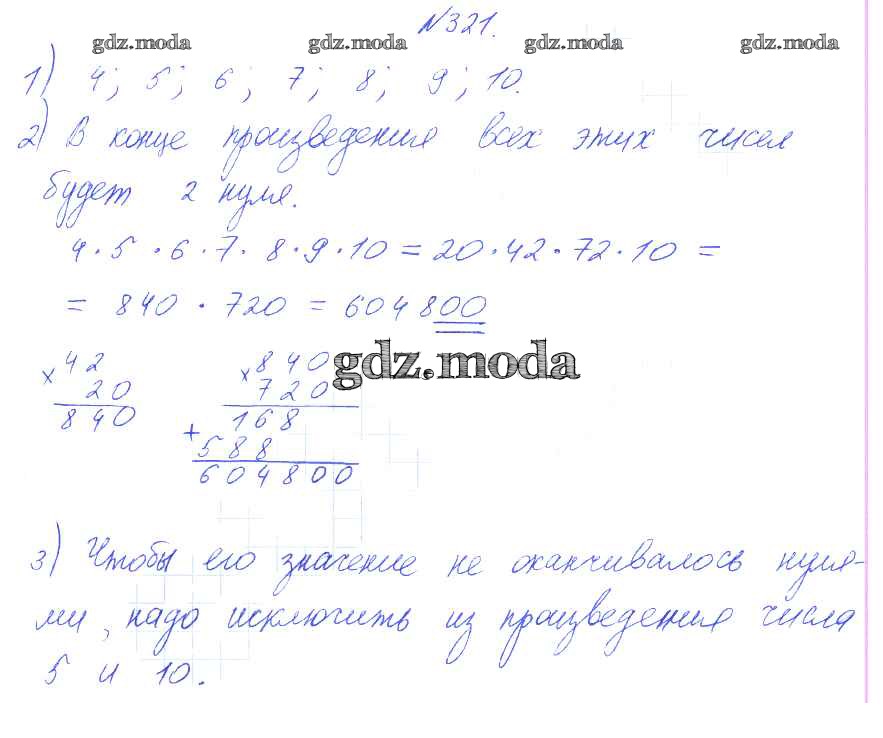 №321.
gdz.moda gdz.moda gdz.moda gdz.moda
1) 4; 5; 6; 7; 8; 9; 10.
2) В конце произведения всех этих чисел
будет 2 нуля.
4·5·6·7·8·9·10 = 20·42·72·10 =
= 840 · 720 = 604800
gdz.moda
×42 ×840
20 720
840 168
+588
604800
3) Чтобы его значение не оканчивалось нуля-
ми, надо исключить из произведения числа
5 и 10.